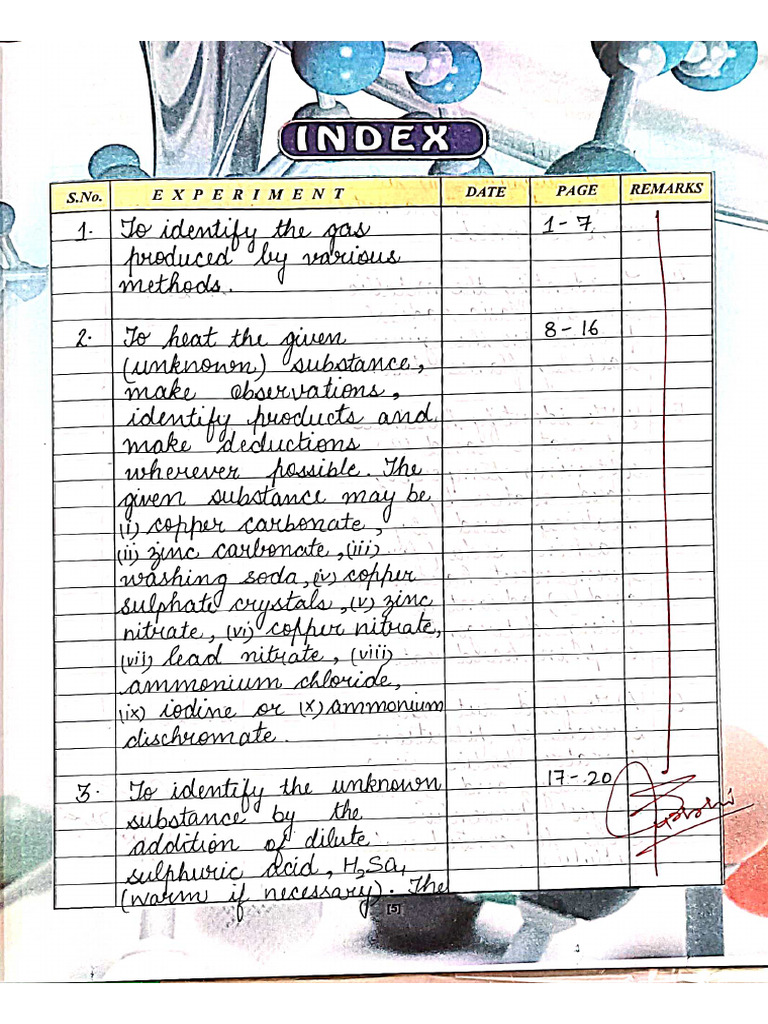 INDEX
S.No. EXPERIMENT DATE PAGE REMARKS
1. To identify the gas 1-7
produced by various
methods.
2. To heat the given 8-16
(unknown) substance,
make observations,
identify products and
make deductions
wherever possible. The
given substance may be
(i) copper carbonate,
(ii) zinc carbonate, (iii)
washing soda, (iv) copper
sulphate crystals, (v) zinc
nitrate, (vi) copper nitrate,
(vii) lead nitrate, (viii)
ammonium chloride,
(ix) iodine or (x) ammonium
dischromate.
3. To identify the unknown 17-20
substance by the
addition of dilute
sulphuric acid, H₂SO₄
(warm if necessary). The
[5]